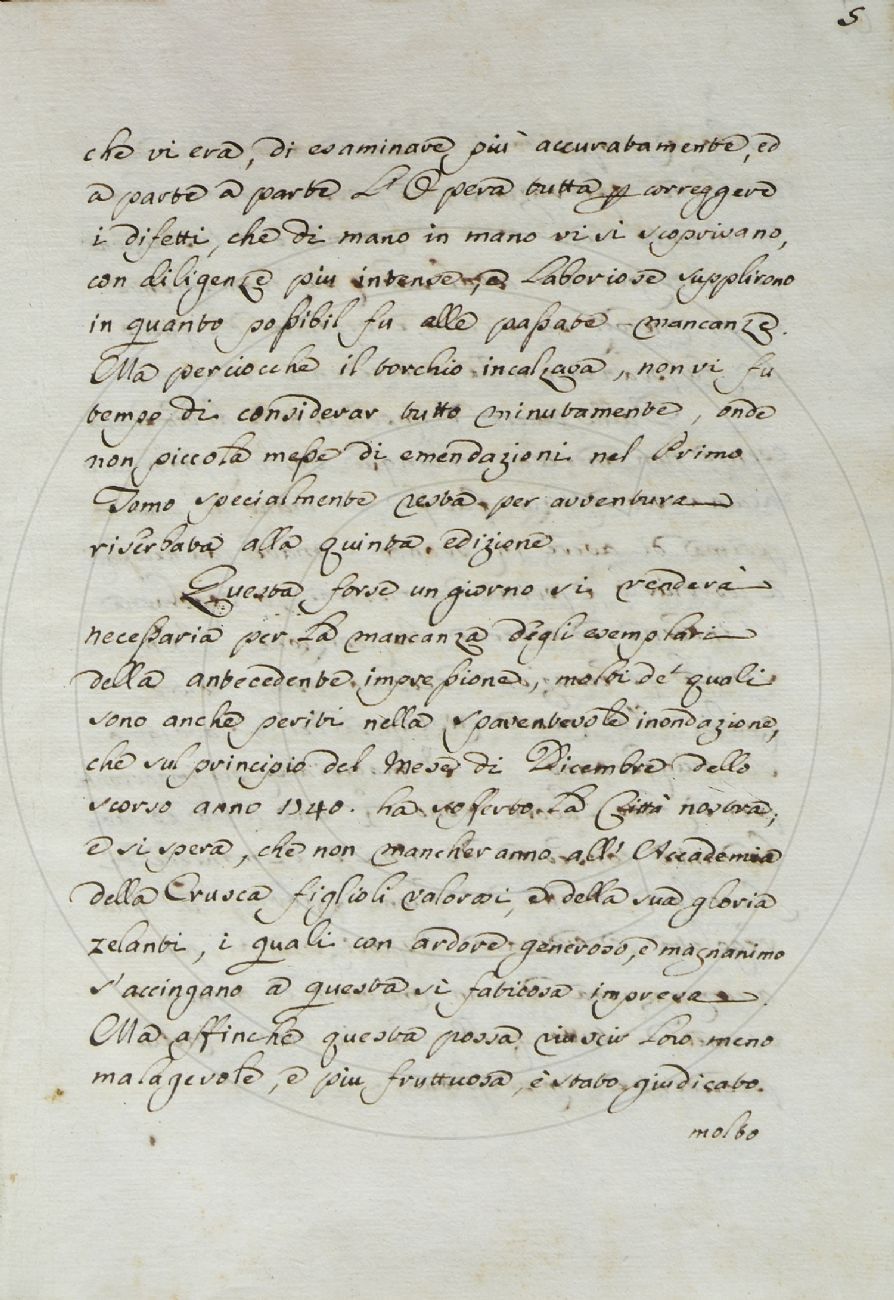 5
che vi era, di esaminare più accuratamente, ed
a parte a parte L'Opera tutta p correggere
i difetti, che di mano in mano vi si scoprivano,
con diligenze piu intense, e Laboriose supplirono
in quanto poßibil fu alle paßate mancanze.
Ma perciocche il torchio incalzava, non vi fu
tempo di considerar tutto minutamente, onde
non piccola meße di emendazioni nel Primo
Tomo specialmente resta per avventura
riserbata alla quinta edizione
Questa forse un giorno si renderà
neceßaria per La mancanza degli esemplari
della antecedente impreßione, molti de' quali
sono anche periti nella spaventevole inondazione,
che sul principio del Mese di Dicembre dello
scorso anno 1740. ha sofferto La Città nostra;
e si spera, che non mancheranno all' Accademia
della Crusca figlioli valorosi, e della sua gloria
zelanti, i quali con ardore generoso, e magnanimo
s'accingano a questa sì faticosa impresa
Ma affinche questa possa riuscir Loro meno
malagevole, e piu fruttuosa, è stato giudicato
molto